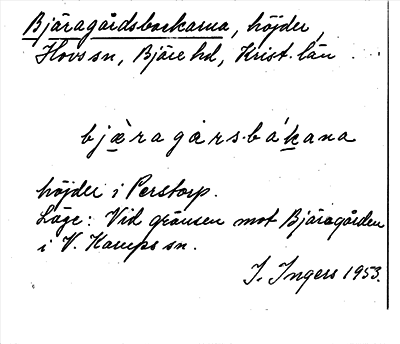 Bjäragårdsbackarna, höjder,
Hovs sn, Bjäre hd, Krist. län
bjæragårsbákana
höjder i Perstorp.
Läge: Vid gränsen mot Bjäragården
i V. Karups sn.
I. Ingers 1953.